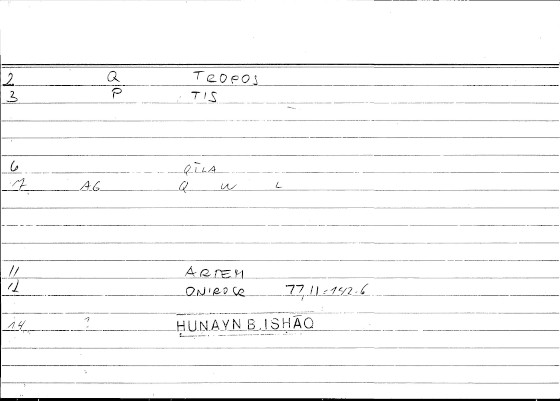 2 Q TROPOS
3 P TIS
6 QĪLA
7 AG Q W L
11 ARTEM
12 ONIROCR 77,11 = 142.6
14 ? HUNAYN B. ISHĀQ